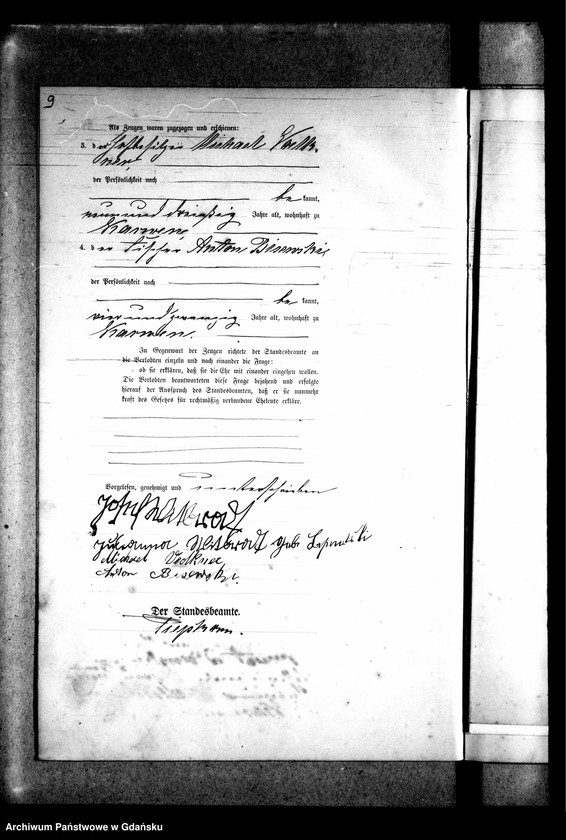 9
Als Zeugen waren zugezogen und erschienen:
3. der Hofbesitzer Michael
der Persönlichkeit nach
be kannt,
neununddreißig Jahre alt, wohnhaft zu
Karwen
4. der Fischer Anton Bisewski
der Persönlichkeit nach
be kannt,
vierundzwanzig Jahre alt, wohnhaft zu
Karwen.
In Gegenwart der Zeugen richtete der Standesbeamte an
die Verlobten einzeln und nach einander die Frage:
ob sie erklären, daß sie die Ehe mit einander eingehen wollen.
Die Verlobten beantworteten diese Frage bejahend und erfolgte
hierauf der Ausspruch des Standesbeamten, daß er sie nunmehr
kraft des Gesetzes für rechtmäßig verbundene Eheleute erkläre.
Vorgelesen, genehmigt und unterschrieben
Josef
Julianna geb.
Michael
Anton Bisewski.
Der Standesbeamte.
Archiwum Państwowe w Gdańsku